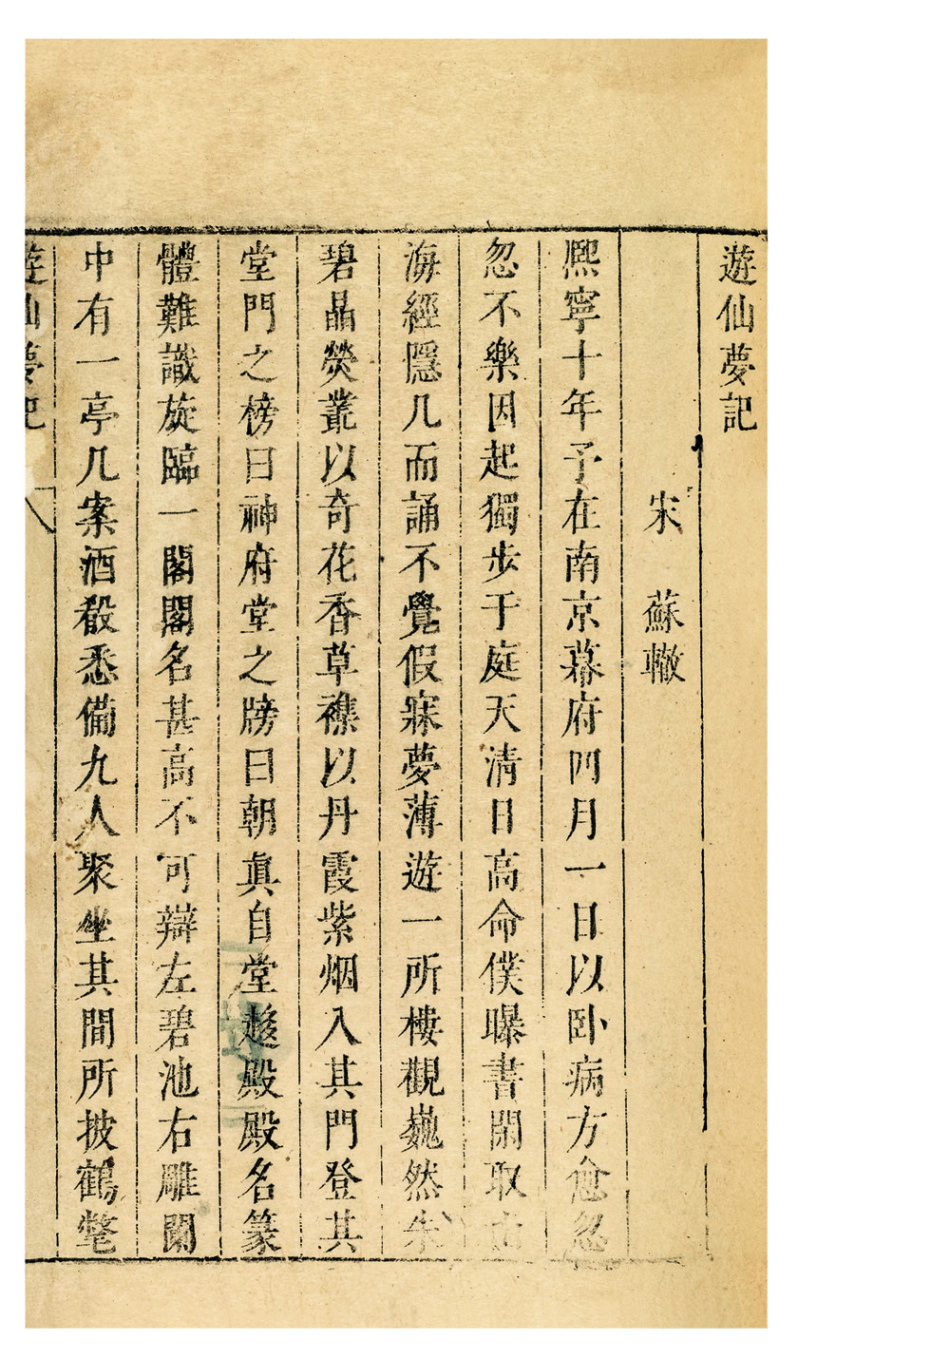 遊仙夢記
宋　蘇轍
熈寧十年予在南京幕府四月一日以卧病方愈忽
忽不樂因起獨步于庭天清日高命僕曝書閒取山
海經隱几而誦不覺假寐夢薄遊一所樓觀巍然朱
碧晶熒叢以奇花香草襍以丹霞紫烟入其門登其
堂門之榜曰神府堂之牓曰朝眞自堂趍殿殿名篆
體難識旋臨一閣閣名甚高不可辯左碧池右雕闌
中有一亭几案酒殽悉備九人聚坐其間所披鶴氅
遊仙夢記